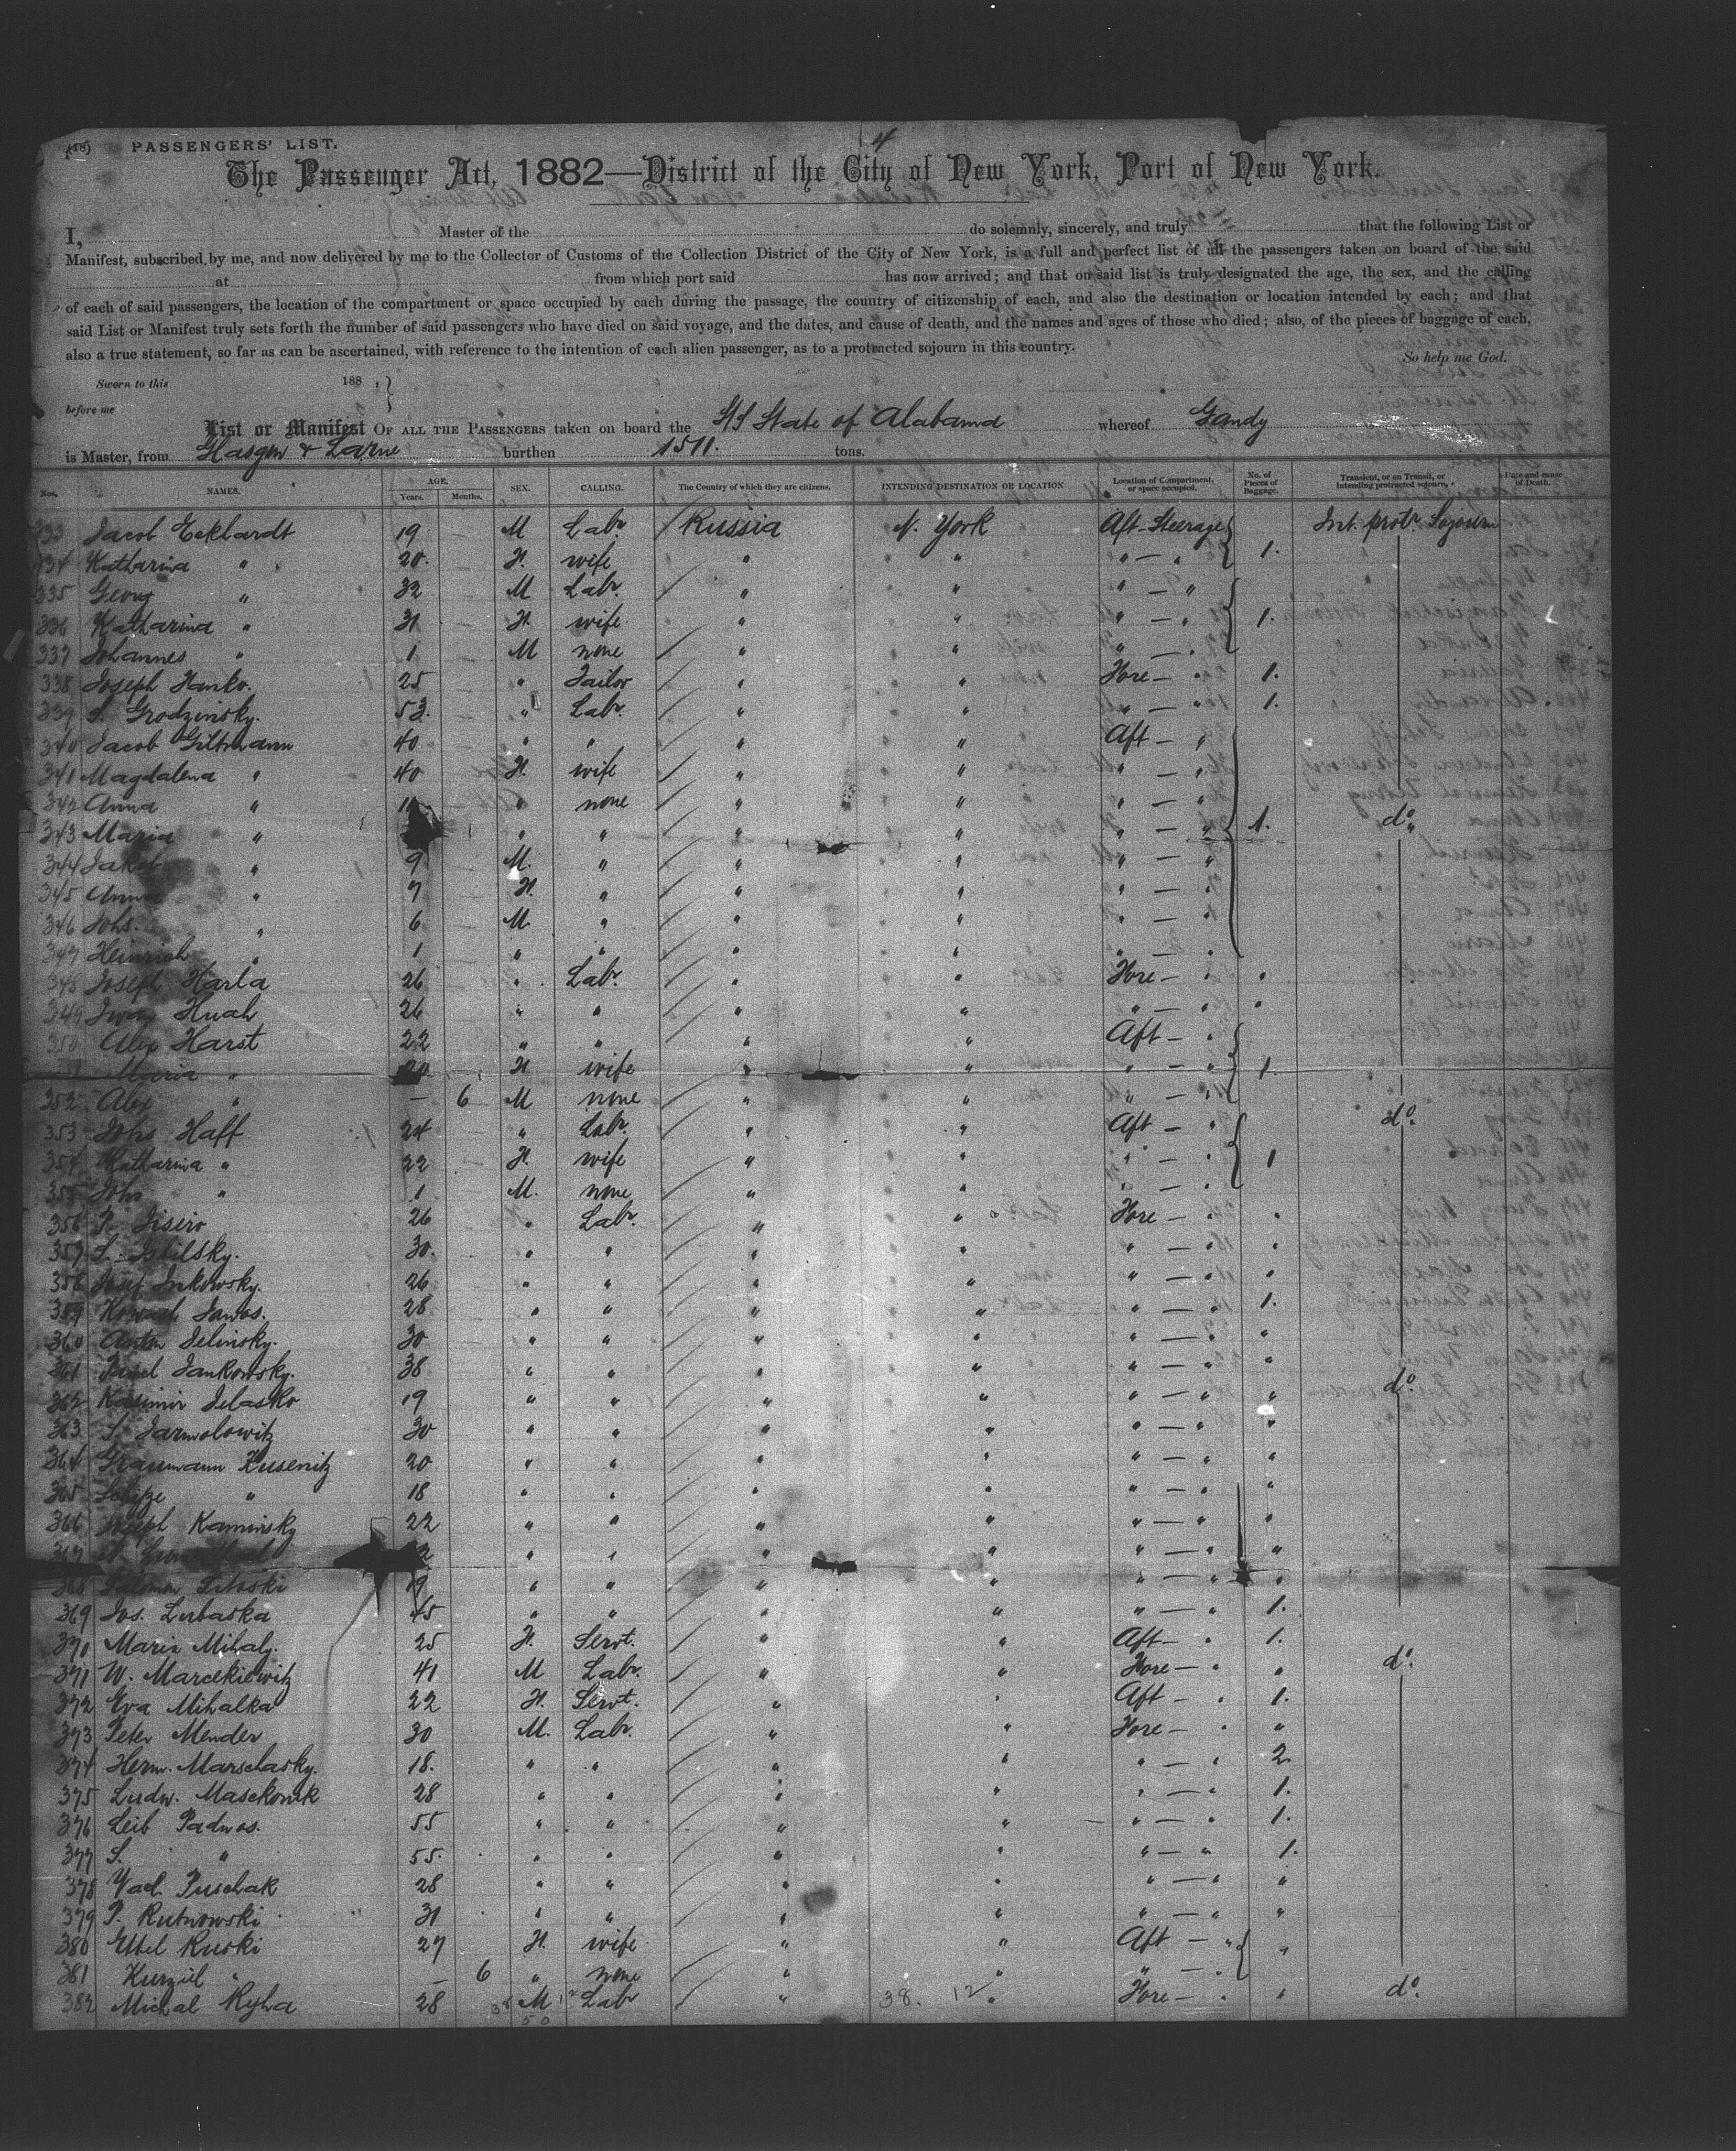 PASSENGERS' LIST.
4
The Passenger Act, 1882—District of the City of New York, Port of New York.
I, Master of the do solemnly, sincerely, and truly that the following List or
Manifest, subscribed by me, and now delivered by me to the Collector of Customs of the Collection District of the City of New York, is a full and perfect list of all the passengers taken on board of the said
at from which port said has now arrived; and that on said list is truly designated the age, the sex, and the calling
of each of said passengers, the location of the compartment or space occupied by each during the passage, the country of citizenship of each, and also the destination or location intended by each; and that
said List or Manifest truly sets forth the number of said passengers who have died on said voyage, and the dates, and cause of death, and the names and ages of those who died; also, of the pieces of baggage of each,
also a true statement, so far as can be ascertained, with reference to the intention of each alien passenger, as to a protracted sojourn in this country.
So help me God.
Sworn to this 188 ,}
before me
List or Manifest OF ALL THE PASSENGERS taken on board the S/S State of Alabama whereof Gandy
is Master, from Glasgow & Larne burthen 1511. tons.
Nos. NAMES. AGE. Years. Months. SEX. CALLING. The Country of which they are citizens. INTENDING DESTINATION OR LOCATION Location of Compartment, or space occupied. No. of Pieces of Baggage. Transient, or on Transit, or intending protracted sojourn. Date and cause of Death.
333 Jacob Eckhardt 19 M Labr. Russia N. York Aft-Steerage Int. protr. Sojourn
334 Katharina " 20. F. wife " " " — " 1.
335 Georg " 32 M Labr. " " " — "
336 Katharina " 31 F. wife " " " — " 1.
337 Johannes " 1 M none " " " — "
338 Joseph Hanko. 25 " Tailor " " Fore — " 1.
339 S. Grodzinsky. 53. " Labr. " " " — " 1.
340 Jacob 40 " " " " Aft — "
341 Magdalena " 40 F. wife " " " — "
342 Anna " " none " " " — "
343 Maria " " " " " " — " 1. do.
344 Jakob " 9 M. " " " " — "
345 Anna " 7 F. " " " " — "
346 Johs. " 6 M. " " " " — "
347 Heinrich " 1 " " " " " — "
348 Joseph Harla 26 " Labr. " " Fore — " "
349 Iwan Huah 26 " " " " " — " "
350 Alex Harst 22 " " " " Aft — "
Maria " 20 F wife " " " — " 1.
352 Alex " — 6 M none " " " — "
353 Johs Haff 24 " Labr. " " Aft — " do.
354 Katharina " 22 F. wife " " " — " 1
355 Johs " 1 M. none " " " — "
356 P. Jisiro 26 " Labr. " " Fore — " "
357 S. 30. " " " " " — " "
358 Josef Inkowsky. 26 " " " " " — " "
359 Jawos. 28 " " " " " — " 1.
360 Anton Jelinsky. 30 " " " " " — " "
361 Pavel Jankowsky. 38 " " " " " — " "
362 Kasimir Jelasko 19 " " " " " — " " do.
363 S. Jarmolowitz 30 " " " " " — " "
364 Graumann Kusenitz 20 " " " " " — " "
365 " 18 " " " " " — " "
366 Joseph Kaminsky 22 " " " " " — " "
367 " " " " " — " "
368 Salomon Litoski 19 " " " " " — " "
369 Jos. Lubaska 45 " " " " " — " 1.
370 Maria Mihaly. 25 F. Servt. " " Aft — " 1.
371 W. Marcekiewitz 41 M Labr. " " Fore — " " do.
372 Eva Mihalka 22 F. Servt. " " Aft — " 1.
373 Peter Mender 30 M. Labr. " " Fore — " "
374 Herm. Marschasky. 18. " " " " " — " 2.
375 Ludw. Masekonik 28 " " " " " — " 1.
376 Leib Padwos. 55 " " " " " — " 1.
377 S. " 55. " " " " " — " 1.
378 Puschak 28 " " " " " — " "
379 P. Rutnowski 31 " " " " " — " "
380 Ettel Ruski 27 F. wife " " Aft — " "
381 Kurziel " — 6 " none " " " — "
382 Michal Ryha 28 M Labr " " Fore — " " do.
38. 12
50